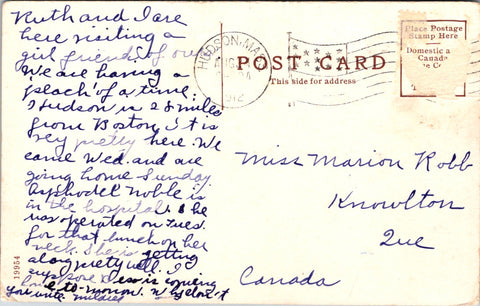 Ruth and I are
here visiting a
girl friend of ours
We are having a
peach of a time.
Hudson is 28 miles
from Boston. It is
very pretty here. We
came Wed. and are
going home Sunday.
Asphodel Noble is
in the hospital. She
was operated on Tues.
for that bunch on her
neck. She is getting
along pretty well. I
suppose is coming
home to-morrow. Why don't
you write. Mildred
19954
HUDSON, MASS
1912
POST CARD
This side for address
Place Postage
Stamp Here
Domestic
Canada
Miss Marion Robb
Knowlton
Que
Canada